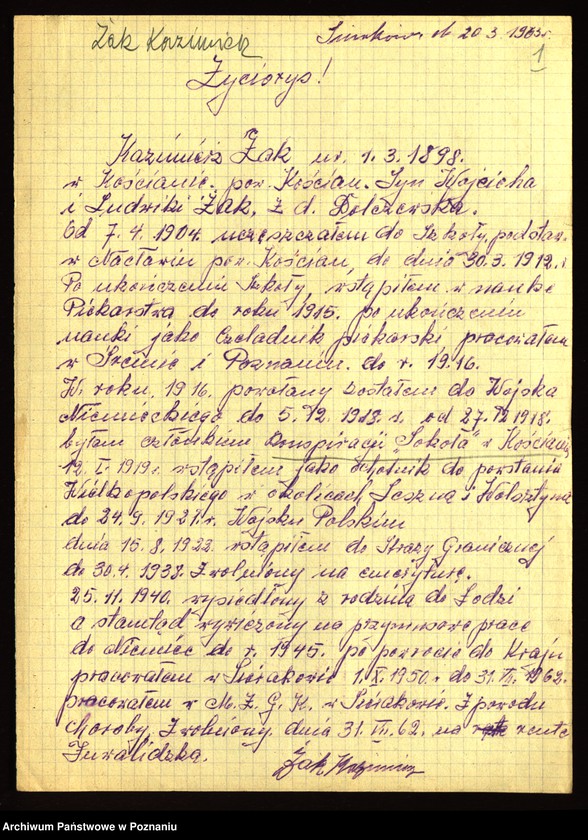 Żak Kazimierz
Sieraków dn 20.3.1963r.
1
Życiorys!
Kazimierz Żak ur. 1.3.1898.
w Kościanie. pow. Kościan. Syn Wojciecha
i Ludwiki Żak, z d. Dolczewska.
Od 7.4.1904. uczęszczałem do Szkoły podstaw.
w Nacławiu pow. Kościan, do dnia 30.3.1912.r
Po ukończeniu Szkoły, wstąpiłem w naukę
Piekarstwa do roku 1915. po ukończeniu
nauki jako Czeladnik piekarski pracowałem
w Śremie i Poznaniu. do r. 1916.
W. roku, 1916. powołany zostałem do Wojska
Niemieckiego do 5.12.1918.r. od 27.12.1918.
byłem członkiem Konspiracji „Sokoła" w Kościanie
12.I.1919r. wstąpiłem jako Ochotnik do powstania
Wielkopolskiego w okolicach Leszna i Wolsztyna
do 24.9.1921.r. Wojsku Polskim
dnia 15.8.1922. wstąpiłem do Straży Granicznej
do 30.4.1938. Zwolniony na emeryturę.
25.11.1940. wysiedlony z rodziną do Łodzi
a stamtąd wywieziony na przymusowe pracę
do Niemiec do r. 1945. po powrocie do Kraju
pracowałem w Sierakowie 1.X.1950. do 31.VII.1962.
pracowałem w M.Z.G.K. w Sierakowie. Z powodu
Choroby. Zwolniony dnia 31.VII.62. na rentę
Inwalidzką.
Żak Kazimierz
Archiwum Państwowe w Poznaniu